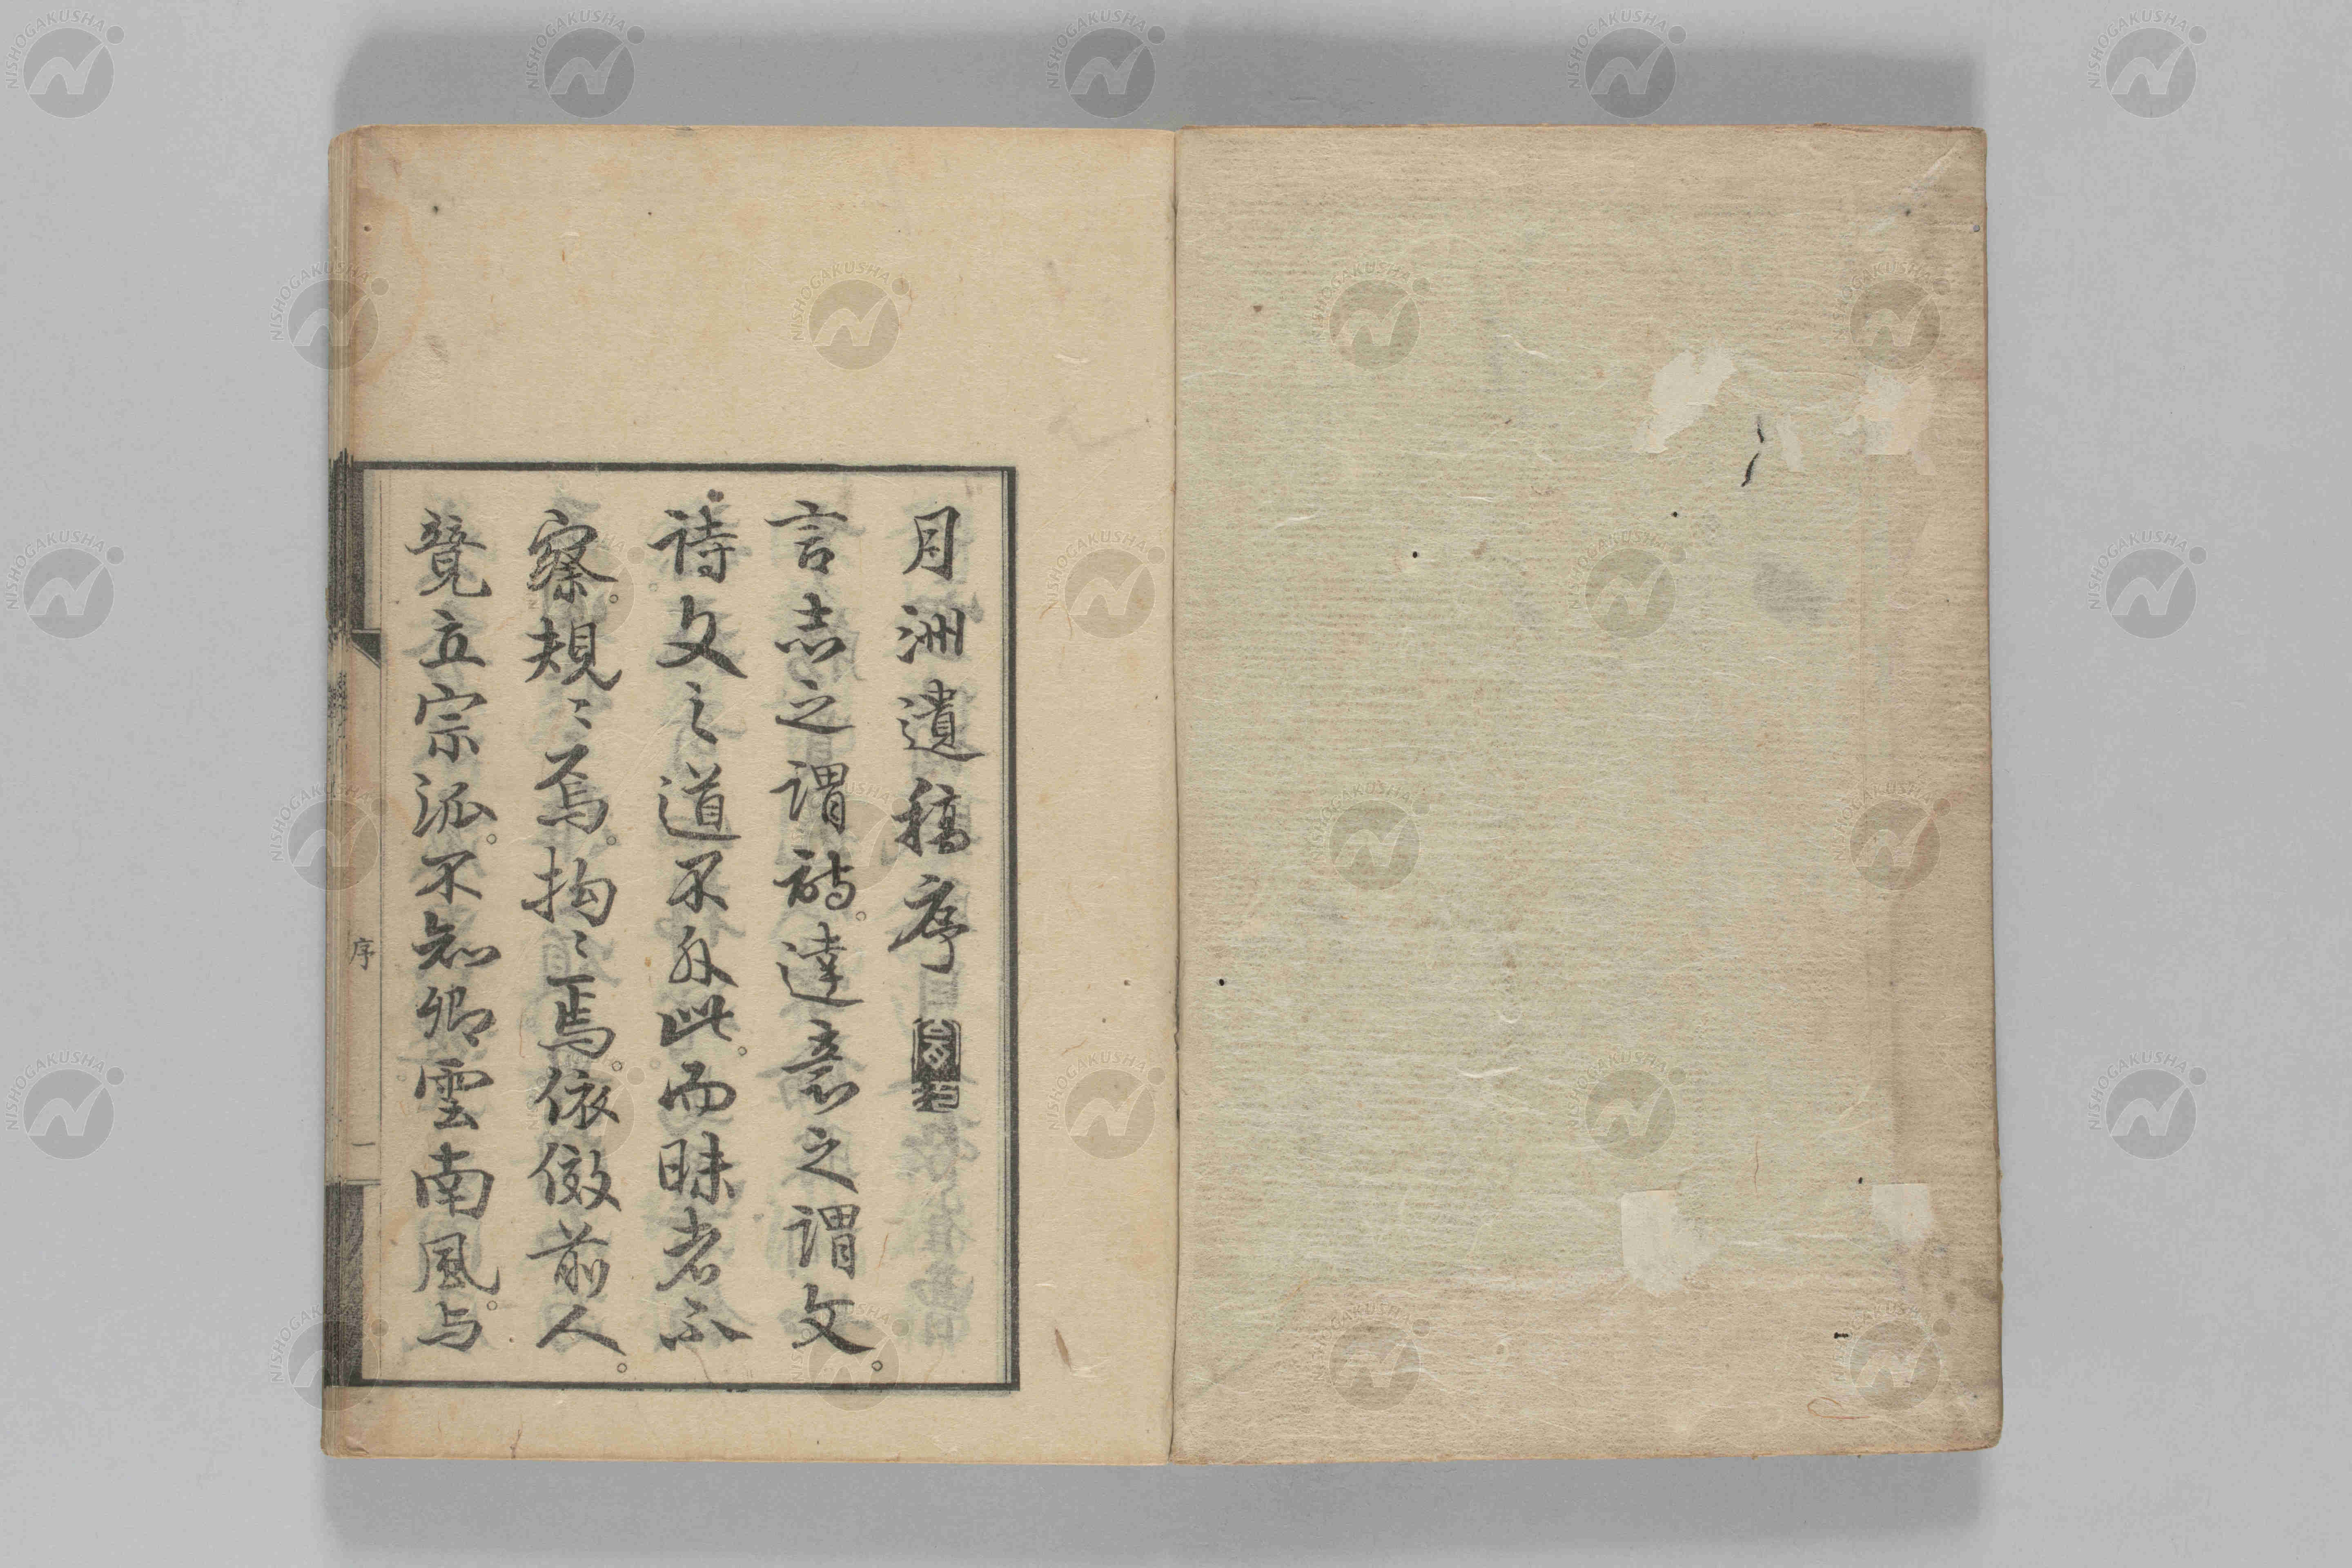 月洲遺稿序
言志之謂詩。達意之謂文。
詩文之道不外此。而昧者不
察。規〻焉。拘〻焉。依傚前人。
競立宗派。不知卿雲南風。与
序
一
NISHOGAKUSHA